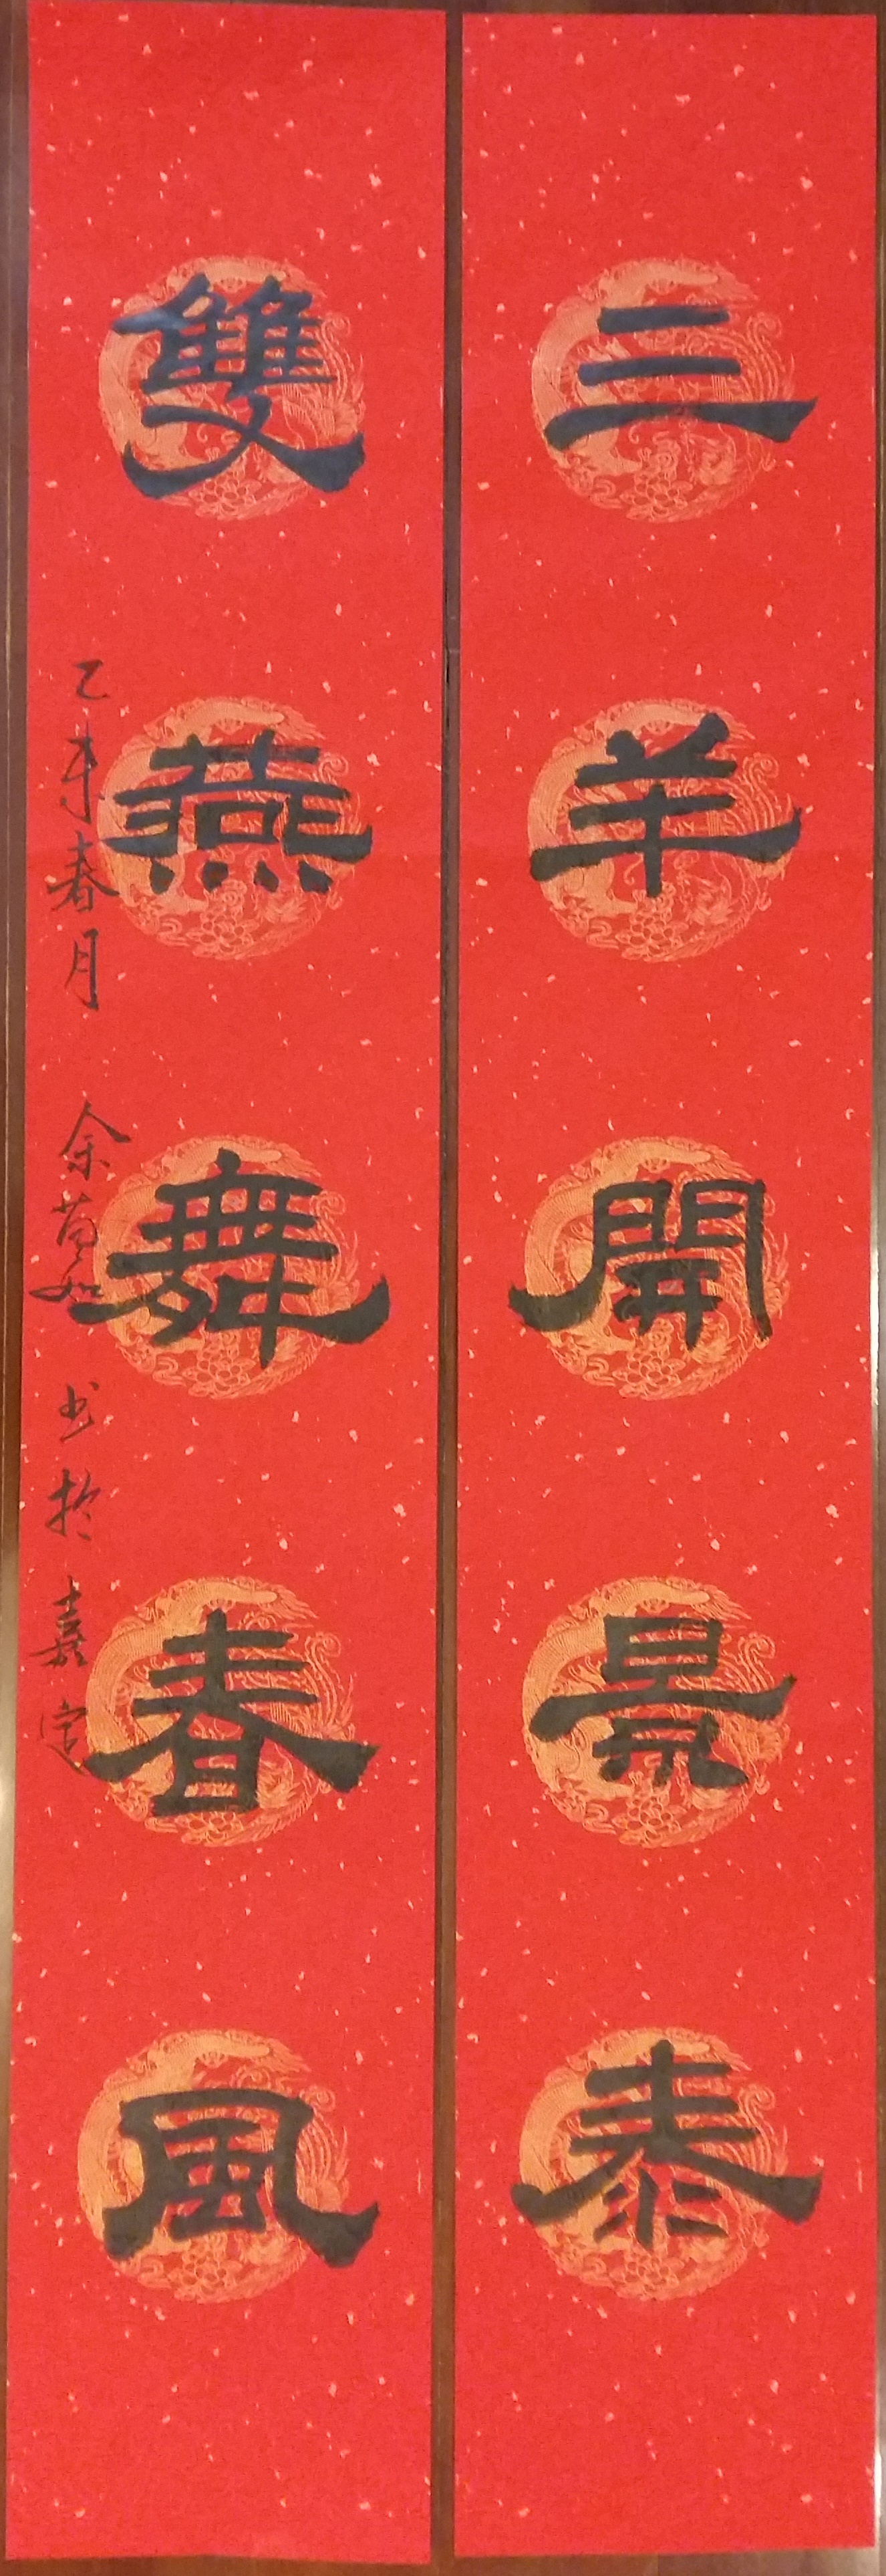 三羊開景泰
雙燕舞春風
乙未春月 余 如 书於嘉定